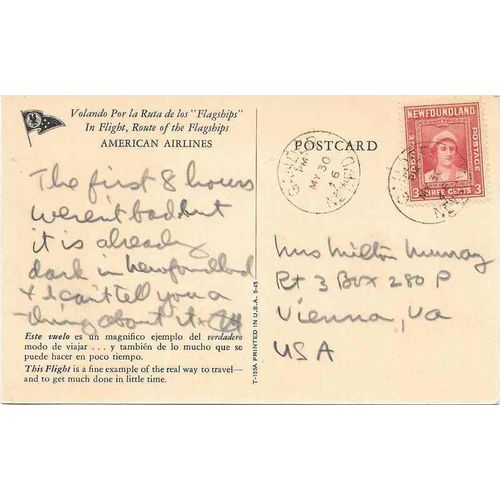 Volando Por la Ruta de los "Flagships"
In Flight, Route of the Flagships
AMERICAN AIRLINES
POSTCARD
NEWFOUNDLAND
POSTAGE
POSTAGE
3 THREE CENTS 3
GANDER
PM
MY 30
46
NEWF
The first 8 hours
weren't bad but
it is already
dark in Newfoundland
& I can't tell you a
thing about it.
Mrs Milton Murray
Rt 3 Box 280 P
Vienna, Va
USA
Este vuelo es un magnifico ejemplo del verdadero
modo de viajar . . . y también de lo mucho que se
puede hacer en poco tiempo.
This Flight is a fine example of the real way to travel—
and to get much done in little time.
T-153A PRINTED IN U.S.A. 5-45